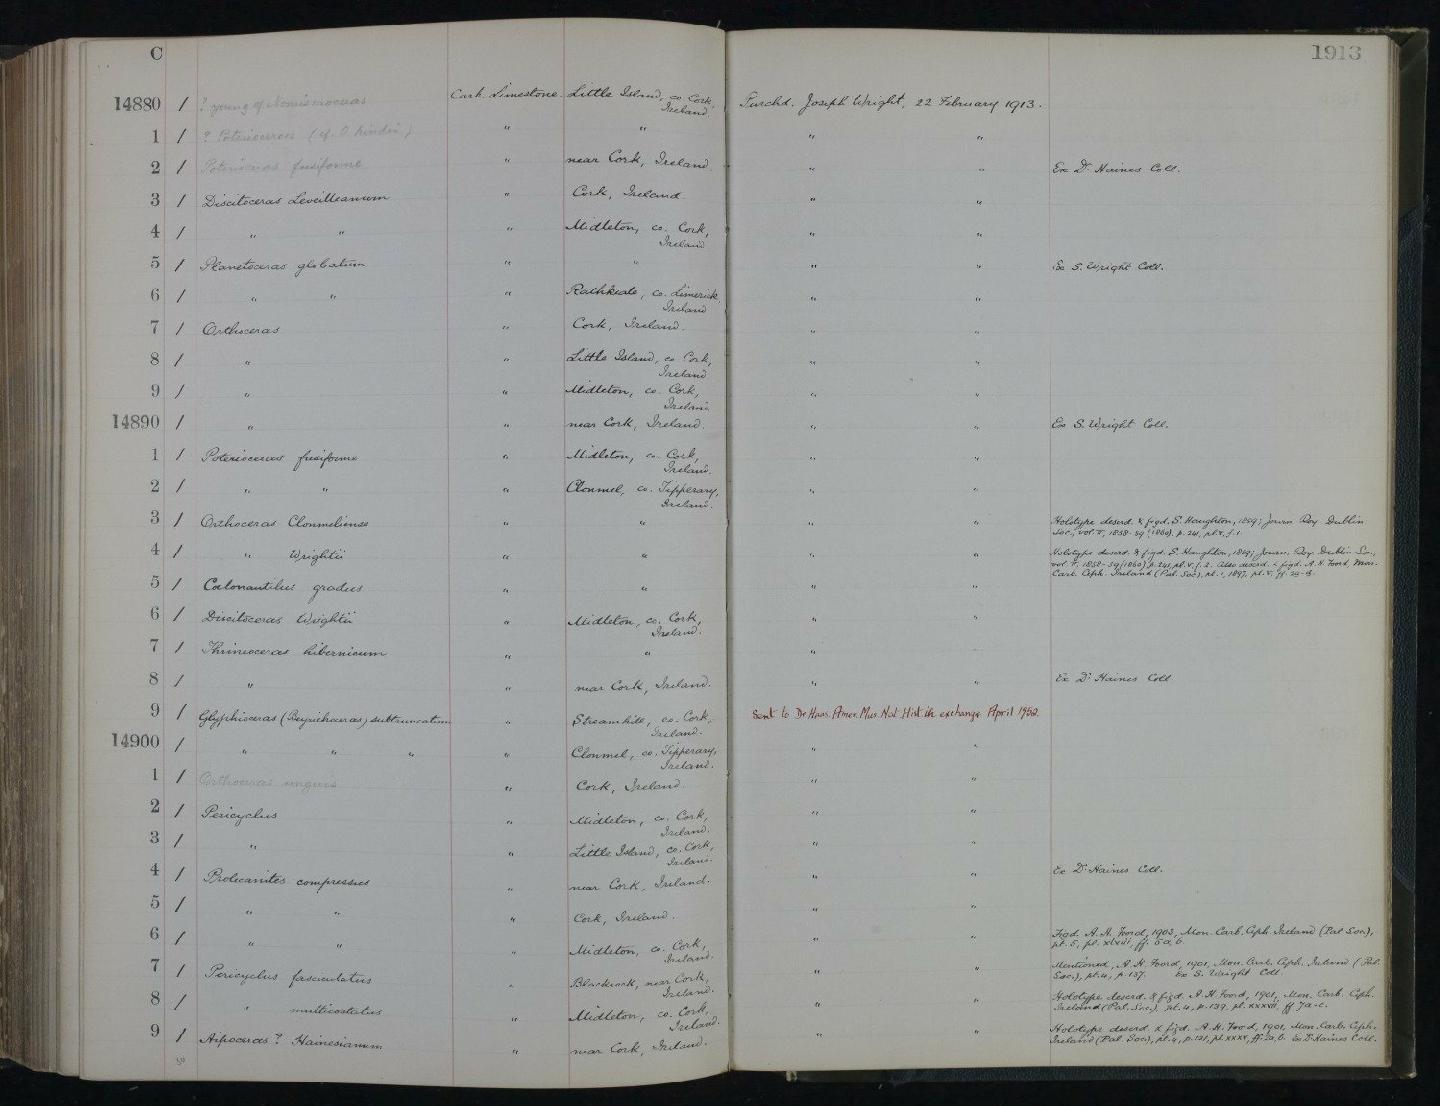 C 1913
14880 / ? young of Nomismoceras Carb. Limestone. Little Island, co. Cork, Ireland. Purchd. Joseph Wright, 22 February 1913.
1 / ? Poterioceras (cf. O. hindei) " " " "
2 / Poterioceras fusiforme " near Cork, Ireland. " " Ex Dr. Haines Coll.
3 / Discitoceras Leveilleanum " Cork, Ireland " "
4 / " " " Midleton, co. Cork, Ireland " "
5 / Planetoceras globatum " " " " Ex S. Wright Coll.
6 / " " " Rathkeale, co. Limerick, Ireland " "
7 / Orthoceras " Cork, Ireland. " "
8 / " " Little Island, co. Cork, Ireland " "
9 / " " Midleton, co. Cork, Ireland " "
14890 / " " near Cork, Ireland. " " Ex S. Wright Coll.
1 / Poterioceras fusiforme " Midleton, co. Cork, Ireland. " "
2 / " " " Clonmel, co. Tipperary, Ireland. " "
3 / Orthoceras Clonmeliense " " " " Holotype descrd. & figd. S. Haughton, 1859; Journ Roy Dublin
Soc., vol. II, 1858-59 (1860), p. 241, pl. V, f. 1.
4 / " Wrightii " " " " Holotype descrd. & figd. S. Haughton, 1859; Journ. Roy. Dublin Soc.,
vol. II, 1858-59 (1860) p. 241, pl. V, f. 2. Also descrd. & figd. A. H. Foord, Mon.
Carb. Ceph. Ireland (Pal. Soc.), pt. 1, 1897, pl. V, ff.
5 / Coelonautilus gradus " " " "
6 / Discitoceras Wrightii " Midleton, co. Cork, Ireland. " "
7 / Thrinoceras hibernicum " " "
8 / " " near Cork, Ireland. " " Ex Dr. Haines Coll
9 / Glyphioceras (Beyrichoceras) subtruncatum " Streamhill, co. Cork, Ireland. Sent to Dr Haas. Amer. Mus. Nat. Hist. in exchange April 1952.
14900 / " " " " Clonmel, co. Tipperary, Ireland. " "
1 / Orthoceras unguis " Cork, Ireland. " "
2 / Pericyclus " Midleton, co. Cork, Ireland. " "
3 / " " Little Island, co. Cork, Ireland. " "
4 / Prolecanites compressus " near Cork, Ireland. " " Ex Dr. Haines Coll.
5 / " " " Cork, Ireland. " "
6 / " " " Midleton, co. Cork, Ireland. " " Figd. A. H. Foord, 1903, Mon. Carb. Ceph. Ireland (Pal Soc.),
pt. 5, pl. xlviii, ff. 5 a, b.
7 / Pericyclus fasciculatus " Blackrock, near Cork, Ireland. " " Mentioned, A. H. Foord, 1901, Mon. Carb. Ceph. Ireland (Pal.
Soc.), pt. 4, p. 137. Ex S. Wright Coll.
8 / " multicostatus " Midleton, co. Cork, Ireland. " " Holotype descrd. & figd. A. H. Foord, 1901, Mon. Carb. Ceph.
Ireland (Pal. Soc.), pt. 4, p. 139, pl. xxxvii, ff 7a-c.
9 / Aipoceras? Hainesianum " near Cork, Ireland. " " Holotype descrd & figd. A. H. Foord, 1901, Mon. Carb. Ceph.
Ireland (Pal. Soc.), pt. 4, p. 131, pl. xxxv, ff. 2a, b. Ex Dr Haines Coll.
30